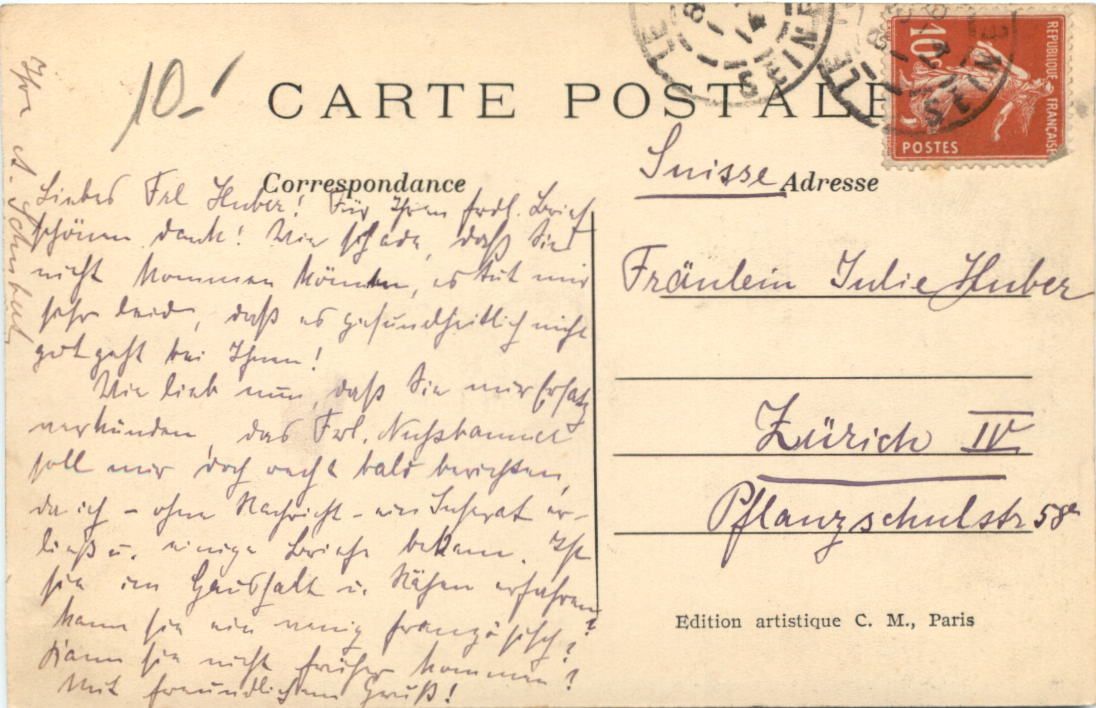 10.-
CARTE POSTALE
Correspondance
Liebes Frl Huber! Für Ihren frdl. Brief
schönen dank! Wie schade, daß Sie
nicht kommen können, es tut mir
sehr leid, daß es gesundheitlich nicht
gut geht bei Ihnen!
Wie lieb nun, daß Sie mir Ersatz
verkünden, das Frl.
soll mir doch recht bald berichten,
da ich - ohne Nachricht - ein Inserat er-
ließ u. einige Briefe bekam. Ist
sie im Haushalt u. Nähen erfahren?
Kann sie ein wenig französisch?
Kann sie nicht früher kommen?
Mit freundlichem Gruß!
Ihre A.
Suisse
Adresse
Fräulein Julie Huber
Zürich IV
Pflanzschulstr 58a
Edition artistique C. M., Paris
10
REPUBLIQUE FRANÇAISE
POSTES
SEINE
SEINE